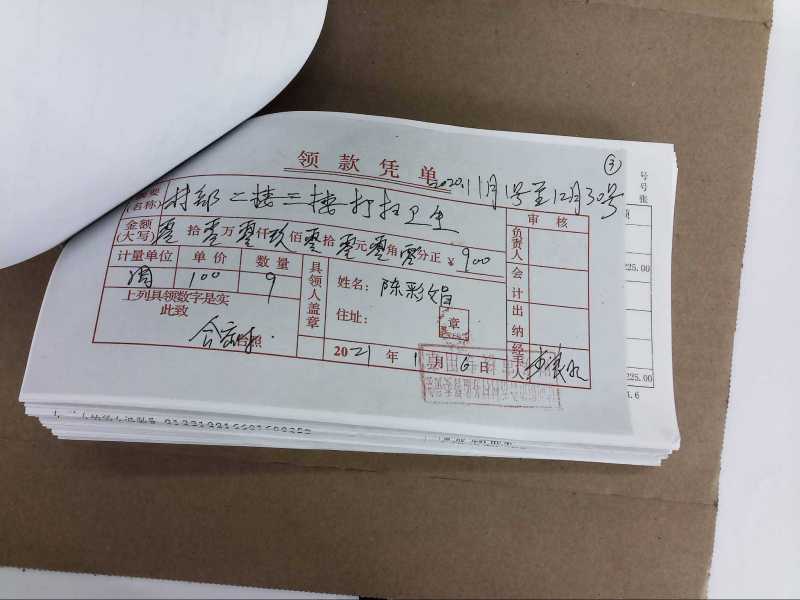 领款凭单
③
2020.11月1号至12月30号
摘要(名称) 村部二楼三楼打扫卫生
审核
金额(大写) 零拾零万零仟玖佰零拾零元零角零分正 ¥900
计量单位 单价 数量
周 100 9
上列具领数字是实
此致
台照
具领人盖章
姓名: 陈彩娟
住址:
章
2021年1月6日
负责人
会计
出纳
经手人
号
号
张
225.00
225.00
1.6